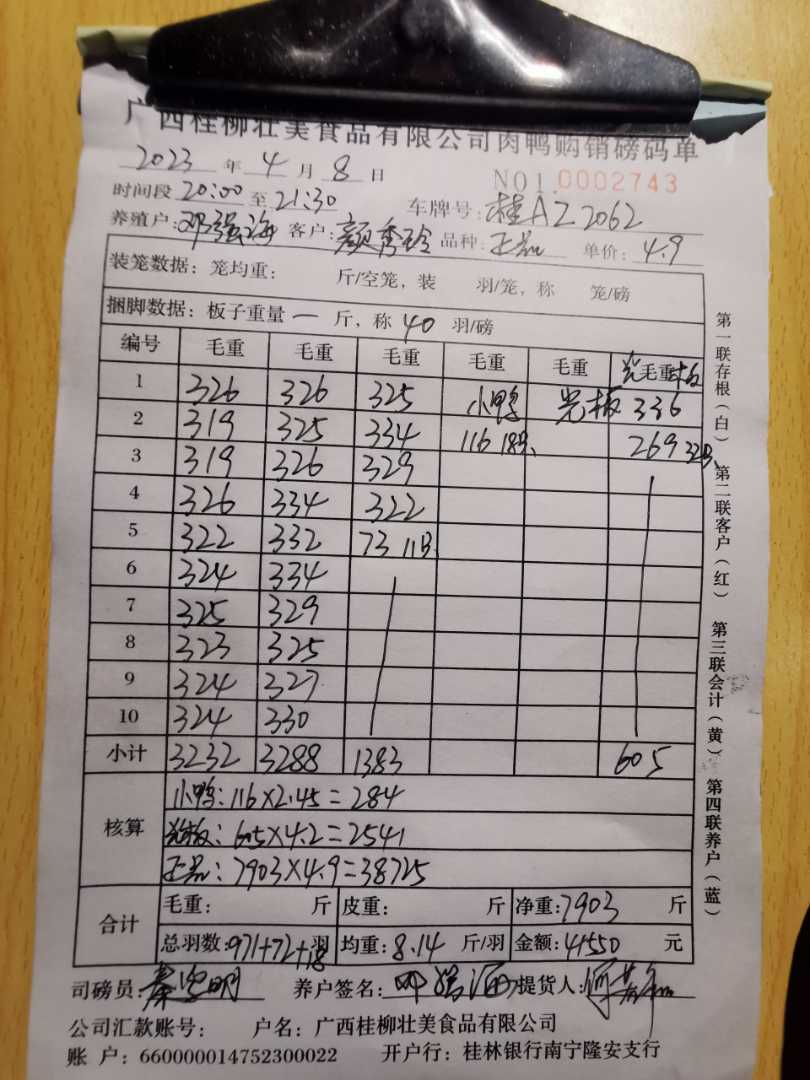 广西桂柳壮美食品有限公司肉鸭购销磅码单
2023 年 4 月 8 日 NO1.0002743
时间段 20:00 至 21:30 车牌号: 桂AZ2062
养殖户: 邓强海 客户: 颜秀玲 品种: 正品 单价: 4.9
装笼数据: 笼均重: 斤/空笼, 装 羽/笼, 称 笼/磅
捆脚数据: 板子重量 一 斤, 称 40 羽/磅
编号 毛重 毛重 毛重 毛重 毛重 光毛重板
1 326 326 325 小鸭 光板 336
2 319 325 334 116 18羽 269 32羽
3 319 326 329
4 326 334 322
5 322 332 73 11羽
6 324 334
7 325 329
8 323 325
9 324 327
10 324 330
小计 3232 3288 1383 605
核算 小鸭: 116×2.45=284
光板: 605×4.2=2541
正品: 7903×4.9=38725
合计 毛重: 斤 皮重: 斤 净重: 7903 斤
总羽数: 971+72+18 羽 均重: 8.14 斤/羽 金额: 41550 元
司磅员: 养户签名: 邓强海 提货人:
公司汇款账号: 户名: 广西桂柳壮美食品有限公司
账 户: 660000014752300022 开户行: 桂林银行南宁隆安支行
第一联存根(白) 第二联客户(红) 第三联会计(黄) 第四联养户(蓝)